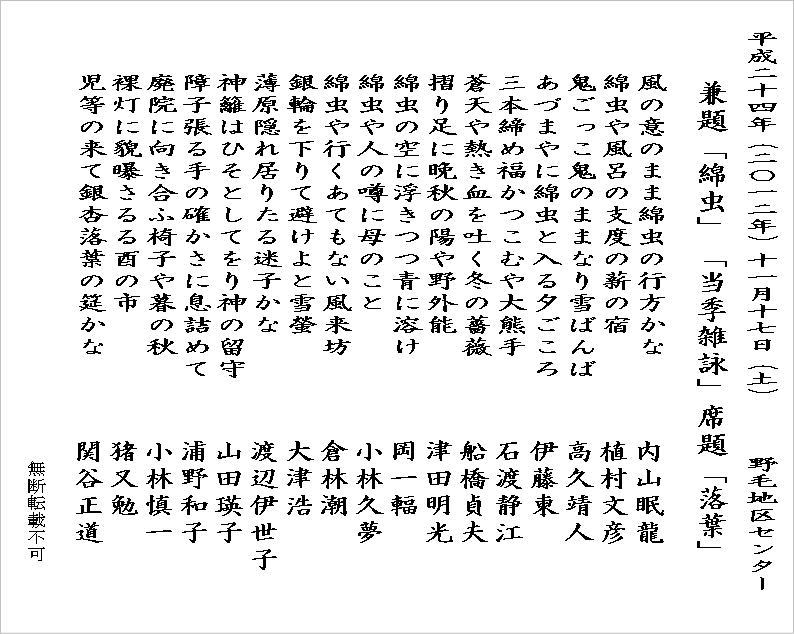 平成二十四年（二〇一二年）十一月十七日（土）　野毛地区センター
兼題「綿虫」「当季雑詠」席題「落葉」
風の意のまま綿虫の行方かな　内山眠龍
綿虫や風呂の支度の薪の宿　植村文彦
鬼ごっこ鬼のままなり雪ばんば　高久靖人
あづまやに綿虫と入る夕ごころ　伊藤東
三本締め福かつこむや大熊手　石渡静江
蒼天や熱き血を吐く冬の薔薇　船橋貞夫
摺り足に晩秋の陽や野外能　津田明光
綿虫の空に浮きつつ青に溶け　岡一輻
綿虫や人の噂に母のこと　小林久夢
綿虫や行くあてもない風来坊　倉林潮
銀輪を下りて避けよと雪螢　大津浩
薄原隠れ居りたる迷子かな　渡辺伊世子
神籬はひそとしてをり神の留守　山田瑛子
障子張る手の確かさに息詰めて　浦野和子
廃院に向き合ふ椅子や暮の秋　小林慎一
裸灯に貌曝さるる酉の市　猪又勉
児等の来て銀杏落葉の筵かな　関谷正道
無断転載不可